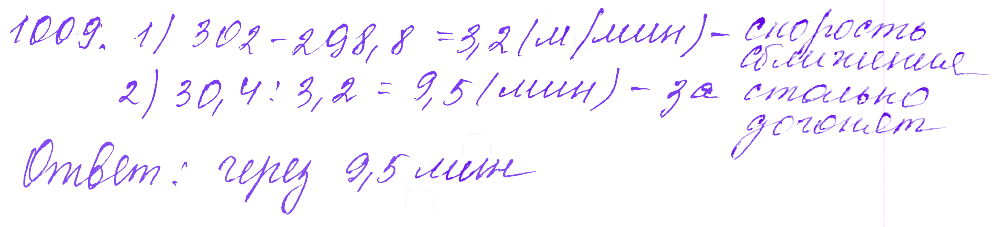 1009. 1) 302 - 298,8 = 3,2 (м/мин) - скорость
сближения
2) 30,4 : 3,2 = 9,5 (мин) - за столько
догонят
Ответ: через 9,5 мин